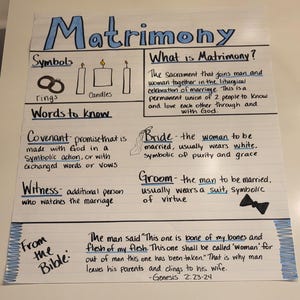 Matrimony
Symbols
rings
Candles
What is Matrimony?
The Sacrament that joins man and
woman together in the liturgical
celebration of marriage. This is a
permanent union of 2 people to know
and love each other through and
with God.
Words to Know
Covenant- promise that is
made with God in a
symbolic action, or with
exchanged words or vows
Witness- additional person
who watches the marriage
Bride - the woman to be
married, usually wears white,
symbolic of purity and grace
Groom - the man to be married,
usually wears a suit, symbolic
of virtue
From
the
Bible:
The man said "This one is bone of my bones and
flesh of my flesh. This one shall be called 'woman' for
out of man this one has been taken." That is why man
leaves his parents and clings to his wife.
-Genesis 2:23-24